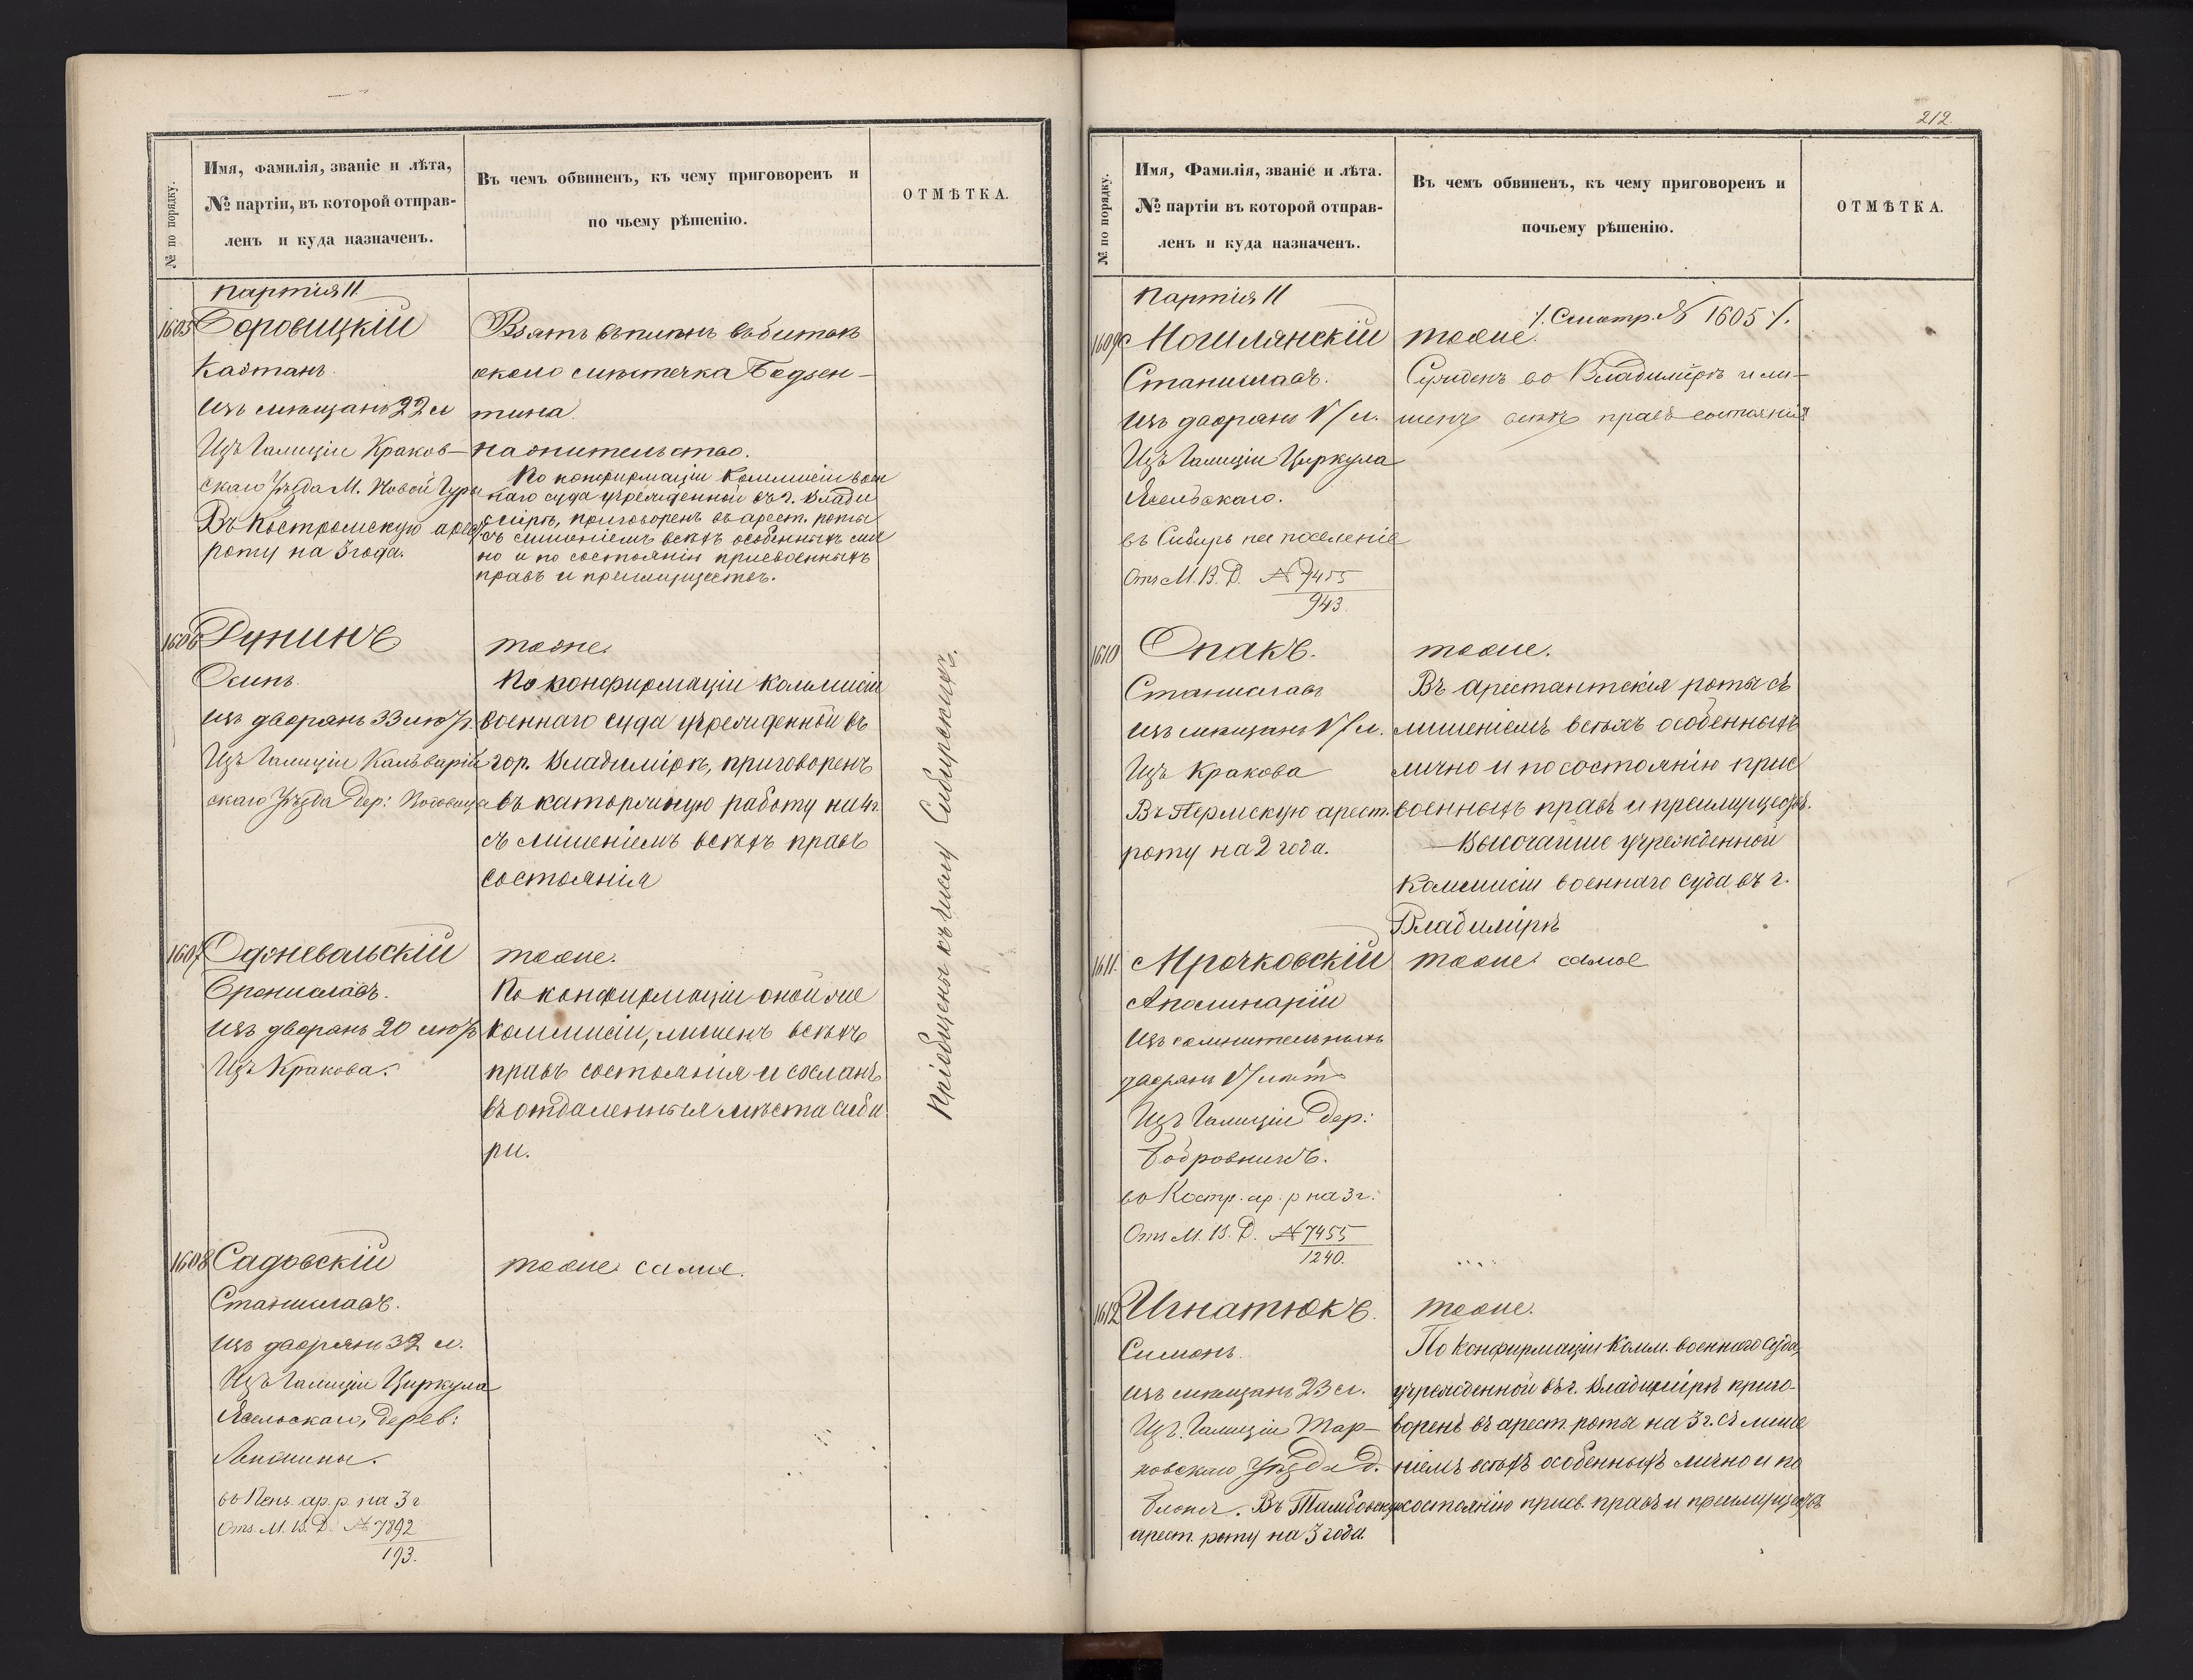 № по порядку.
Имя, фамилія, званіе и лѣта,
№ партіи, въ которой отправ-
ленъ и куда назначенъ.
Въ чемъ обвиненъ, къ чему приговоренъ и
по чьему рѣшенію.
ОТМѢТКА.
партія 11
1605 Боровицкій
Каэтанъ
изъ мѣщанъ 22 л
Изъ Галиціи Краков-
скаго Уѣзда М. Новой Гуры
Въ Костромскую арест.
роту на 3 года.
Взятъ въ плѣнъ въ битвѣ
около мѣстечка Бодзен-
тина
На жительство.
По конфирмаціи Коммисіи воен
наго суда учрежденной въ г. Влади
мірѣ, приговоренъ въ арест. роты
съ лишеніемъ всѣхъ особенныхъ лич
но и по состоянію присвоенныхъ
правъ и преимуществъ.
1606 Дунинъ
Осипъ
изъ дворянъ 33
Изъ Галиціи Кальварій
скаго Уѣзда дер:
тоже.
По конфирмаціи коммисіи
военнаго суда учрежденной въ
гор. Владимірѣ, приговоренъ
въ каторжную работу на 4 г.
съ лишеніемъ всѣхъ правъ
состоянія
1607
Брониславъ.
изъ дворянъ 20
Изъ Кракова.
тоже.
По конфирмаціи оной же
коммисіи, лишенъ всѣхъ
правъ состоянія и сосланъ
въ отдаленныя мѣста Сиби
ри.
1608 Садовскій
Станиславъ.
изъ дворянъ 32 л.
Изъ Галиціи Циркула
Ясельскаго, дерев:
въ Пенз. ар. р. на 3 г
Отз. М. В. Д. № 7892
193.
тоже самое.
Пріобщены къ числу Сибирскихъ.
212.
№ по порядку.
Имя, Фамилія, званіе и лѣта.
№ партіи въ которой отправ-
ленъ и куда назначенъ.
Въ чемъ обвиненъ, къ чему приговоренъ и
почьему рѣшенію.
ОТМѢТКА.
партія 11
1609 Могилянскій
Станиславъ.
изъ дворянъ л.
Изъ Галиціи Циркула
Ясельскаго.
въ Сибирь на поселеніе
Отз М. В. Д. № 7455
943.
/. Смотр. № 1605 /.
тоже.
Сужденъ во Владимірѣ и ли-
шенъ всѣхъ правъ состоянія
1610 Опакъ.
Станиславъ
изъ мѣщанъ л.
Изъ Кракова
Въ Пермскую арест.
роту на 2 года.
тоже.
Въ арестантскія роты съ
лишеніемъ всѣхъ особенныхъ
лично и по состоянію прис
военныхъ правъ и преимуществъ.
Высочайше учрежденной
Коммисіи военнаго суда въ г.
Владимірѣ
1611. Мрочковскій
Аполинарій
Изъ сомнительныхъ
дворянъ лѣтъ
Изъ Галиціи дер:
Бобровникъ.
во Костр. ар. р на 3 г.
Отз М. В. Д. № 7455
1240.
тоже самое
1612 Игнатюкъ.
Симонъ.
изъ мѣщанъ 23 л.
Изъ Галиціи Тар-
новскаго Уѣзда Д.
Въ Тамбовскую
арест. роту на 3 года
тоже.
По конфирмаціи Комм. военнаго суда,
учрежденной въ г. Владимірѣ приго-
воренъ въ арест. роты на 3 г. съ лише
ніемъ всѣхъ особенныхъ лично и по
состоянію присв. правъ и преимуществъ